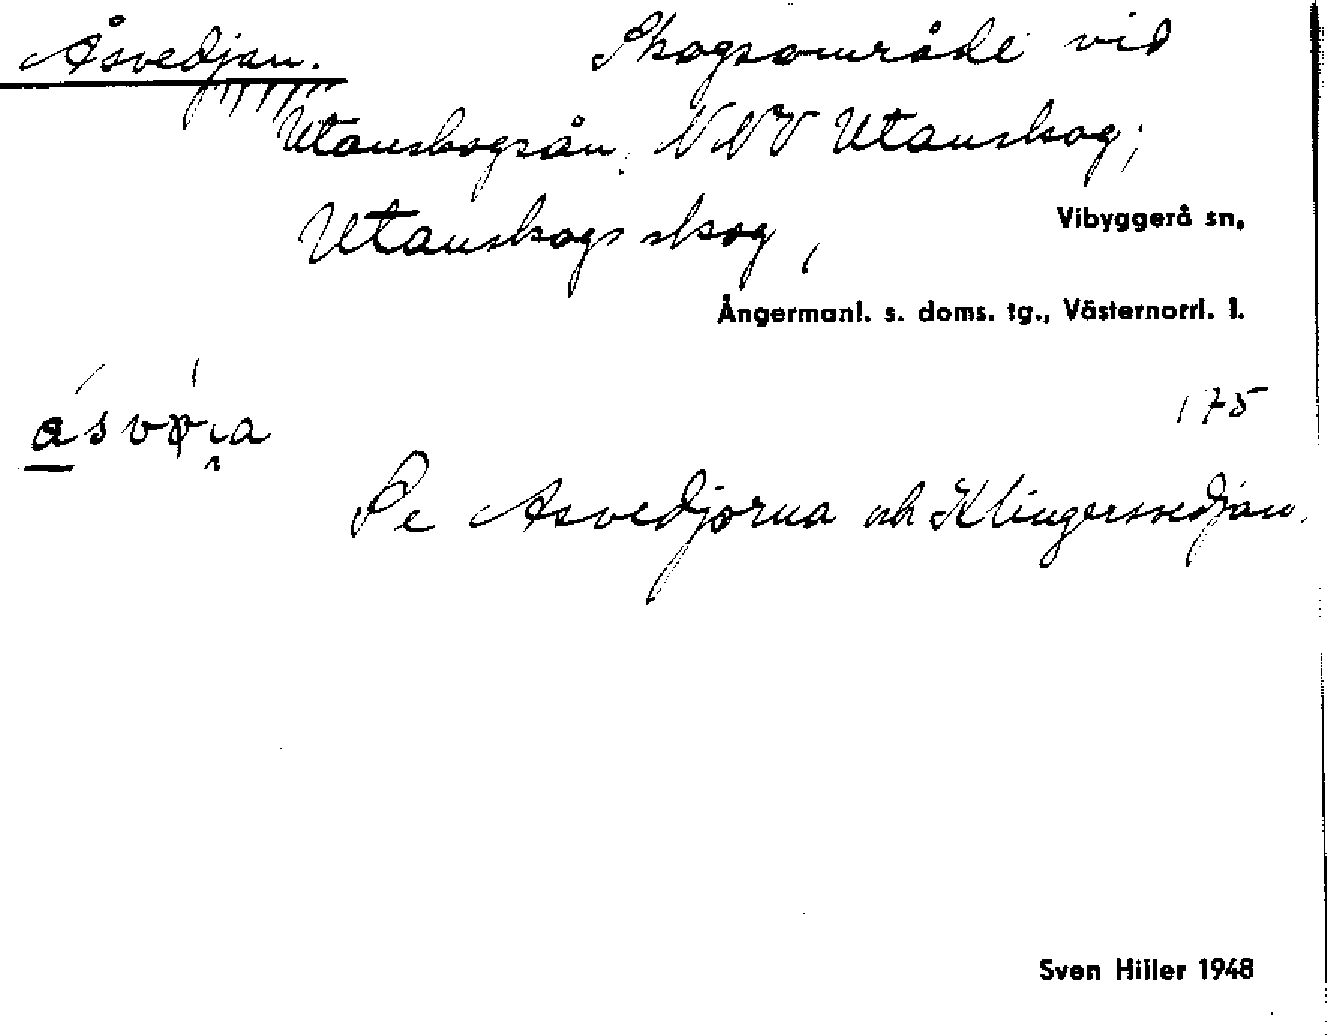 Åsvedjan. Skogsområde vid
Utanskogsån, NNV Utanskog;
Utanskogs skog,
Vibyggerå sn,
Ångermanl. s. doms. tg., Västernorrl. l.
175
Se Åsvedjorna och Klingersvedjan.
Sven Hiller 1948